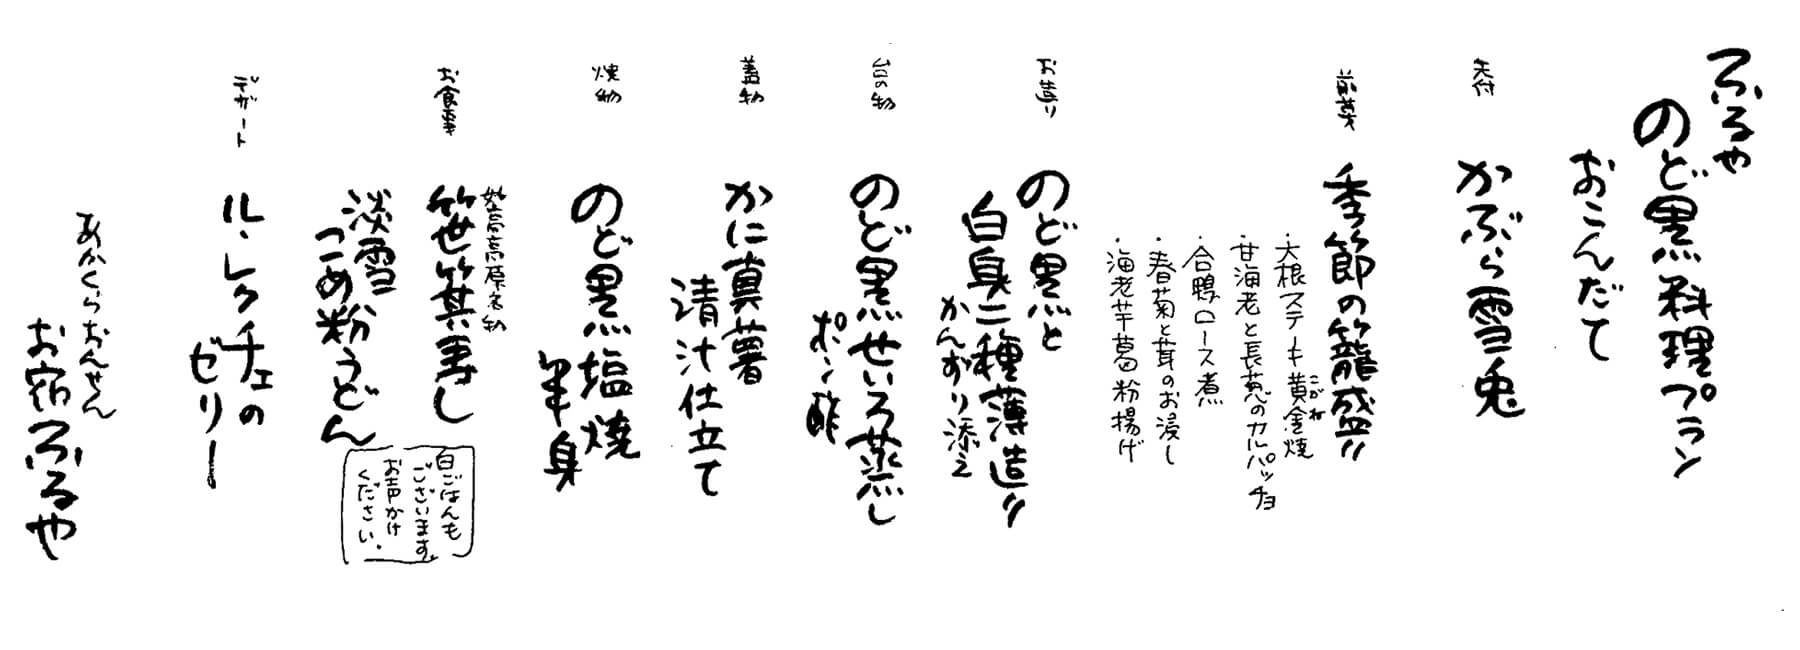 ふるや
のど黒料理プラン
おこんだて
先付
かぶら雪兎
前菜
季節の籠盛り
・大根ステーキ黄金焼
こがね
・甘海老と長葱のカルパッチョ
・合鴨ロース煮
・春菊と茸のお浸し
・海老芋葛粉揚げ
お造り
のど黒と
白身二種薄造り
かんずり添え
台の物
のど黒せいろ蒸し
ポン酢
蓋物
かに真薯
清汁仕立て
焼物
のど黒塩焼
半身
お食事
妙高高原名物
笹笑寿し
淡雪
こめ粉うどん
白ごはんも
ございます。
お声かけ
ください。
デザート
ル・レクチェの
ゼリー
あかくらおんせん
お宿ふるや